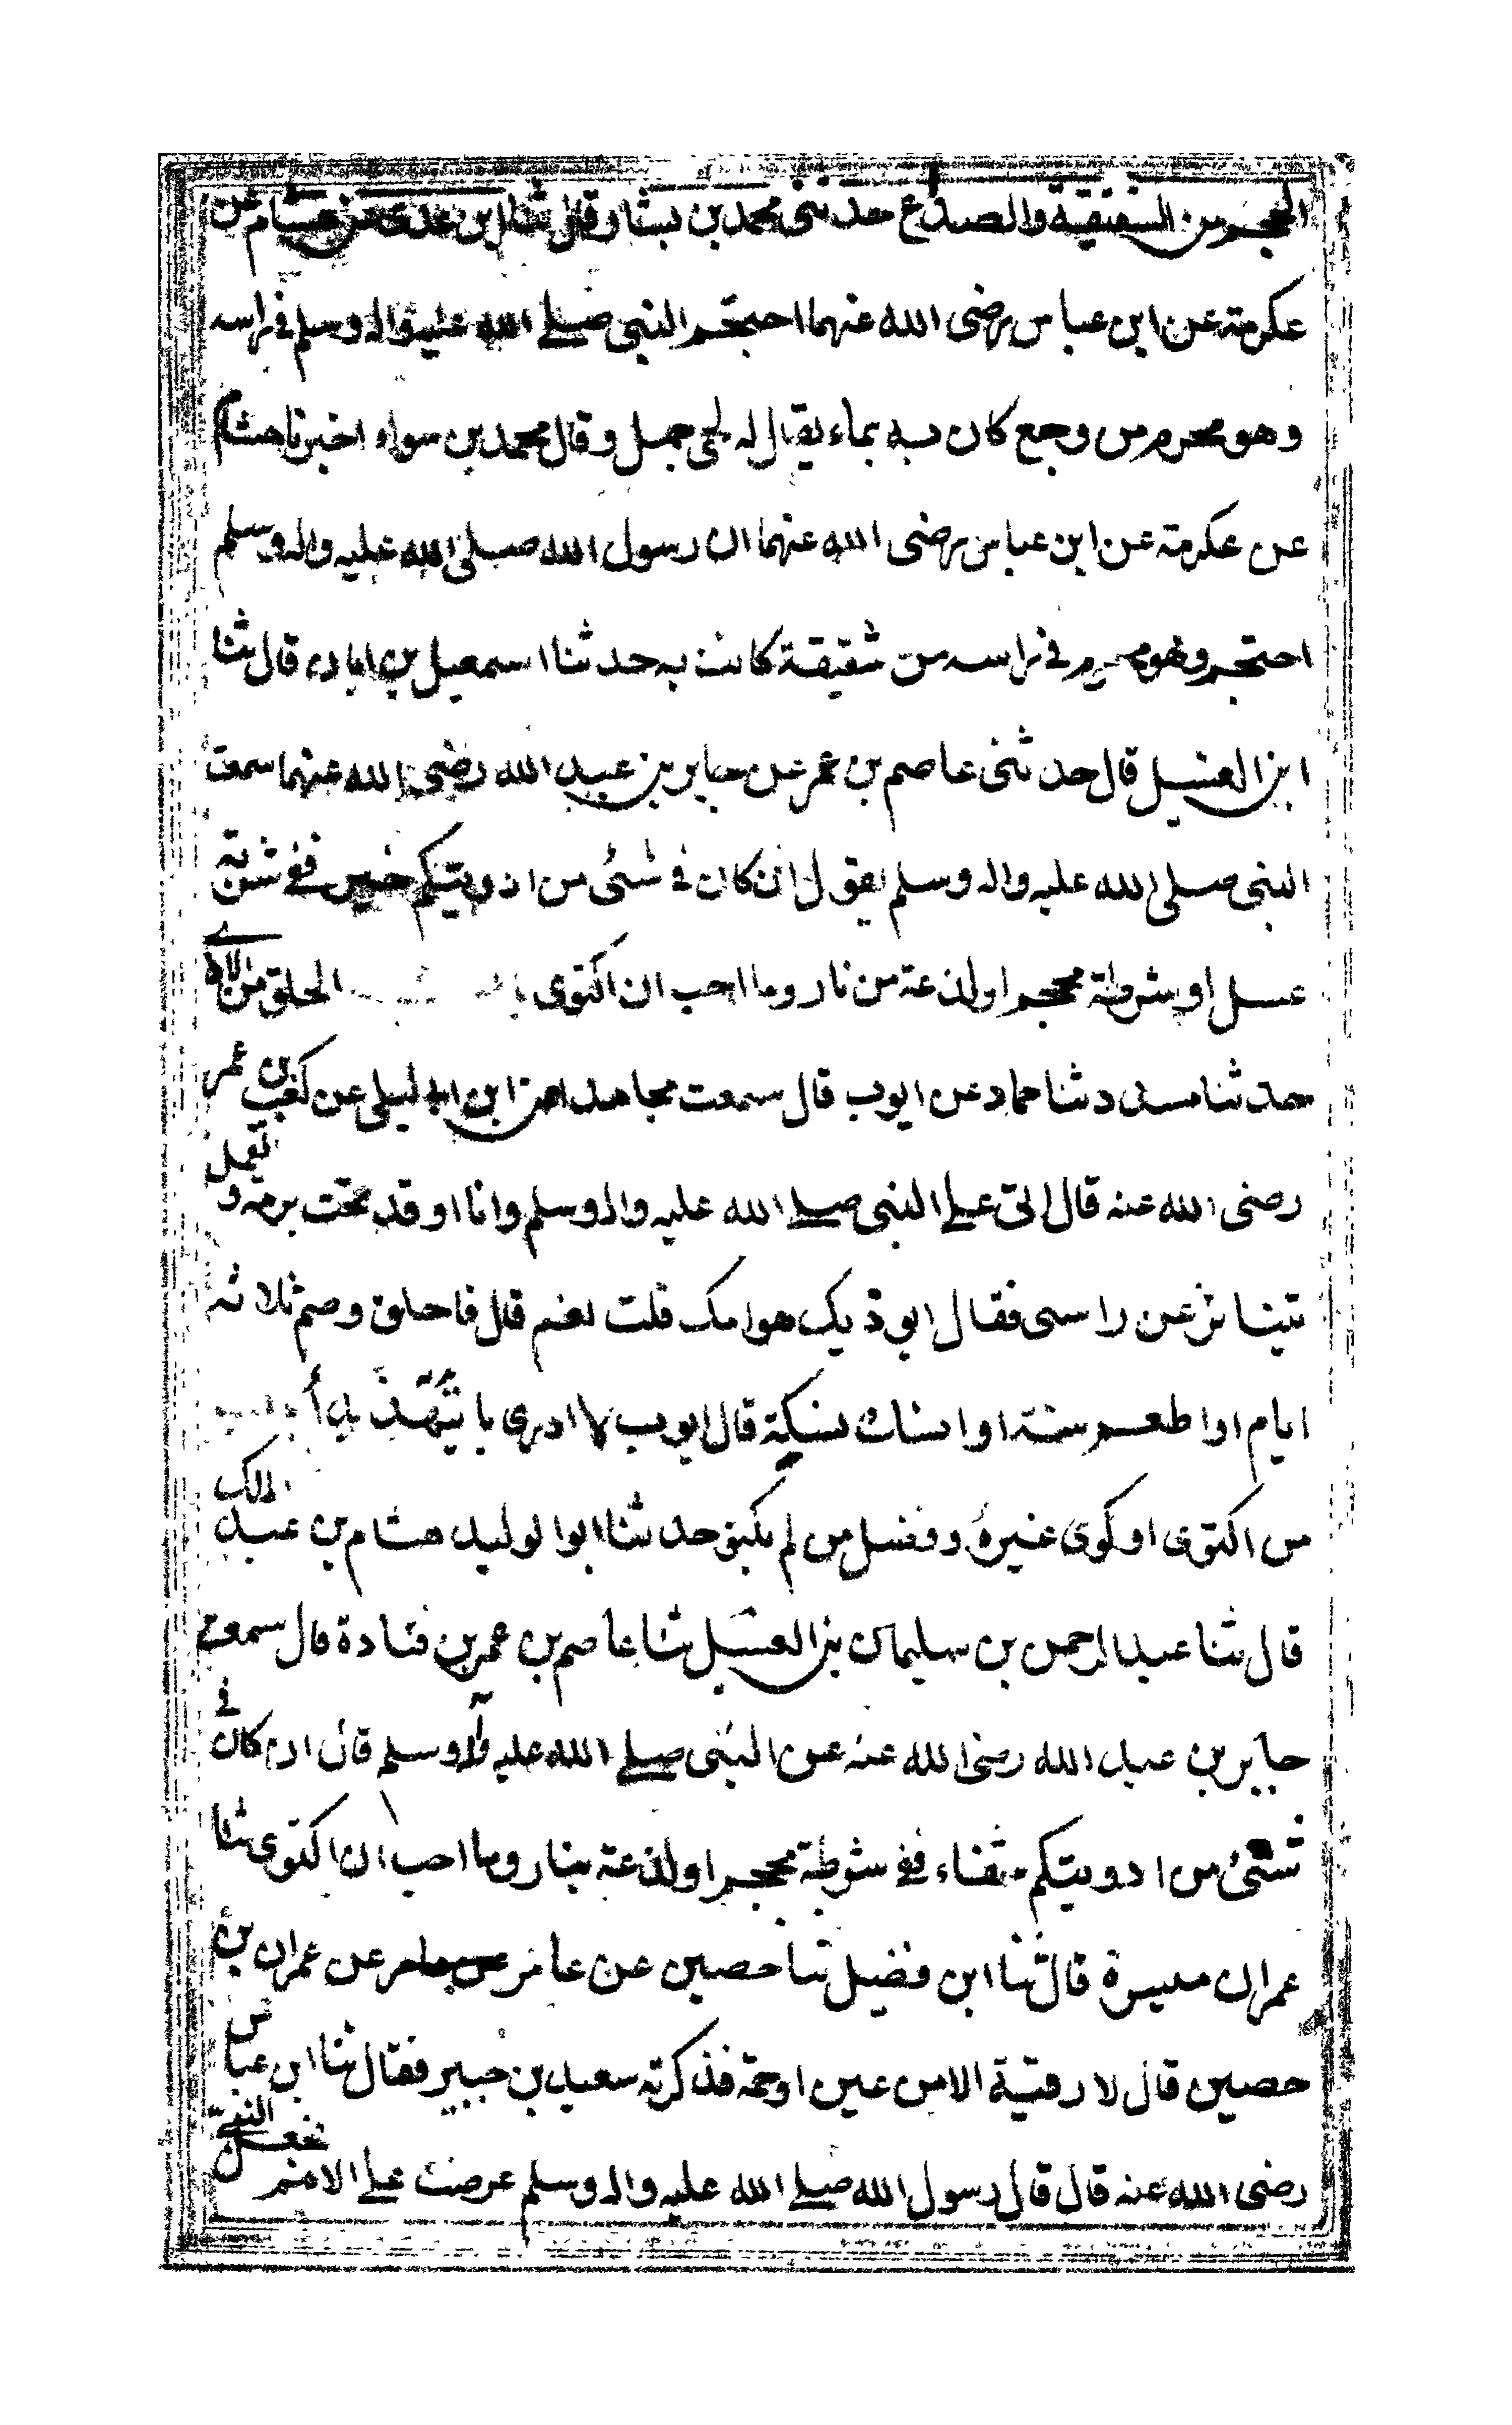 الحجم من الشقيقة والصداع حدثني محمد بن بشار وقال ثنا ابن عدي عن هشام عن
عكرمة عن ابن عباس رضى الله عنهما احتجم النبي صلے الله عليه واله وسلم في راسه
وهو محرم من وجع كان به بماء يقال له لحى جمل وقال محمد بن سواء اخبرنا هشام
عن عكرمة عن ابن عباس رضى الله عنهما ان رسول الله صلى الله عليه واله وسلم
احتجم وهو محرم في راسه من شقيقة كانت به حدثنا اسمعيل بن ابان قال ثنا
ابن الغسيل قال حدثنى عاصم بن عمر عن جابر بن عبد الله رضي الله عنهما سمعت
النبى صلى الله عليه واله وسلم يقول ان كان في شئى من ادويتيكم خير ففي شربة
عسل او شرطة محجم او لذعة من نار وما احب ان اكتوى الحلق من الاذے
حدثنا مسدد ثنا حماد عن ايوب قال سمعت مجاهدا عن ابن ابى ليلى عن كعب بن عمر
رضى الله عنه قال اتى علے النبى صلے الله عليه واله وسلم وانا اوقد تحت برمة و قمل
تيناثر عن راسى فقال ايوذيك هوامك قلت نعم قال فاحلق وصم ثلاثه
ايام او اطعم ستة او انسك نسيكة قال ايوب لا ادرى با يتهن بدأ
من اكتوى او كوى غيره وفضل من لم يكتو حدثنا ابوا لوليد هشام بن عبد الملك
قال ثنا عبد الرحمن بن سليمان بن الغسيل ثنا عاصم بن عمر بن قتادة قال سمعت
جابر بن عبد الله رضى الله عنه عن النبى صلے الله عليه واله وسلم قال ان كان في
شئى من ادويتيكم شفاء ففي شرطة محجم او لذعة بنار وما احب ان اكتوى ثنا
عمران ميسرة قال ثنا ابن فضيل ثنا حصين عن عامر عن عمران بن
حصين قال لا رقية الا من عين او حمة فذكرته سعيد بن جبير فقال ثنا ابن عباس
رضى الله عنه قال قال رسول الله صلے الله عليه واله وسلم عرضت علے الامم فجعل النبي